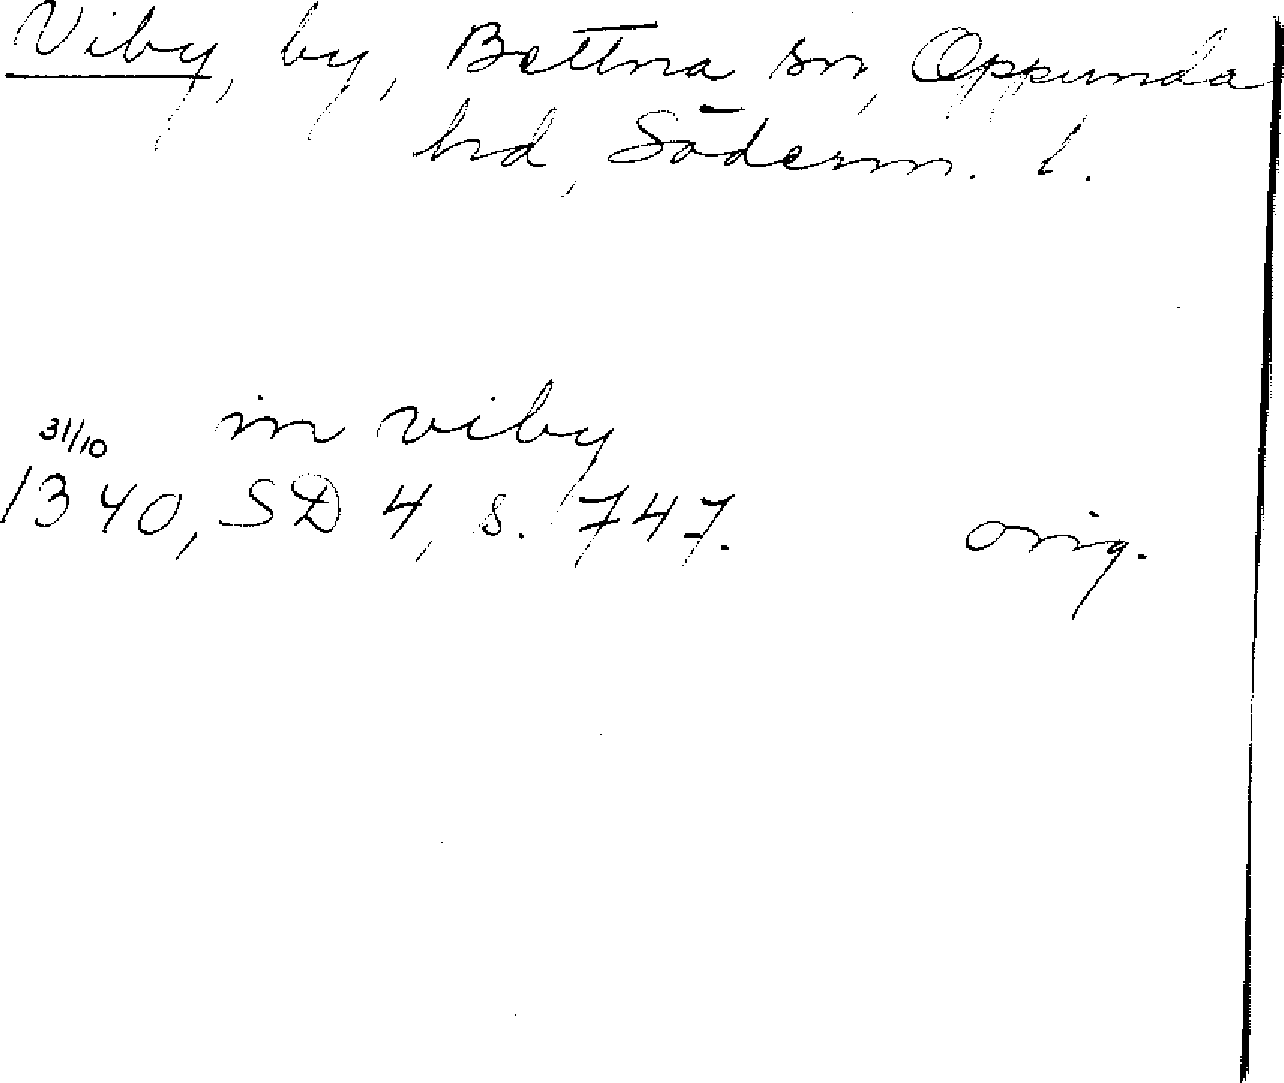 Viby, by, Bettna sn, Oppunda
hd, Söderm. l.
in viby
31/10
1340, SD 4, s. 747. orig.